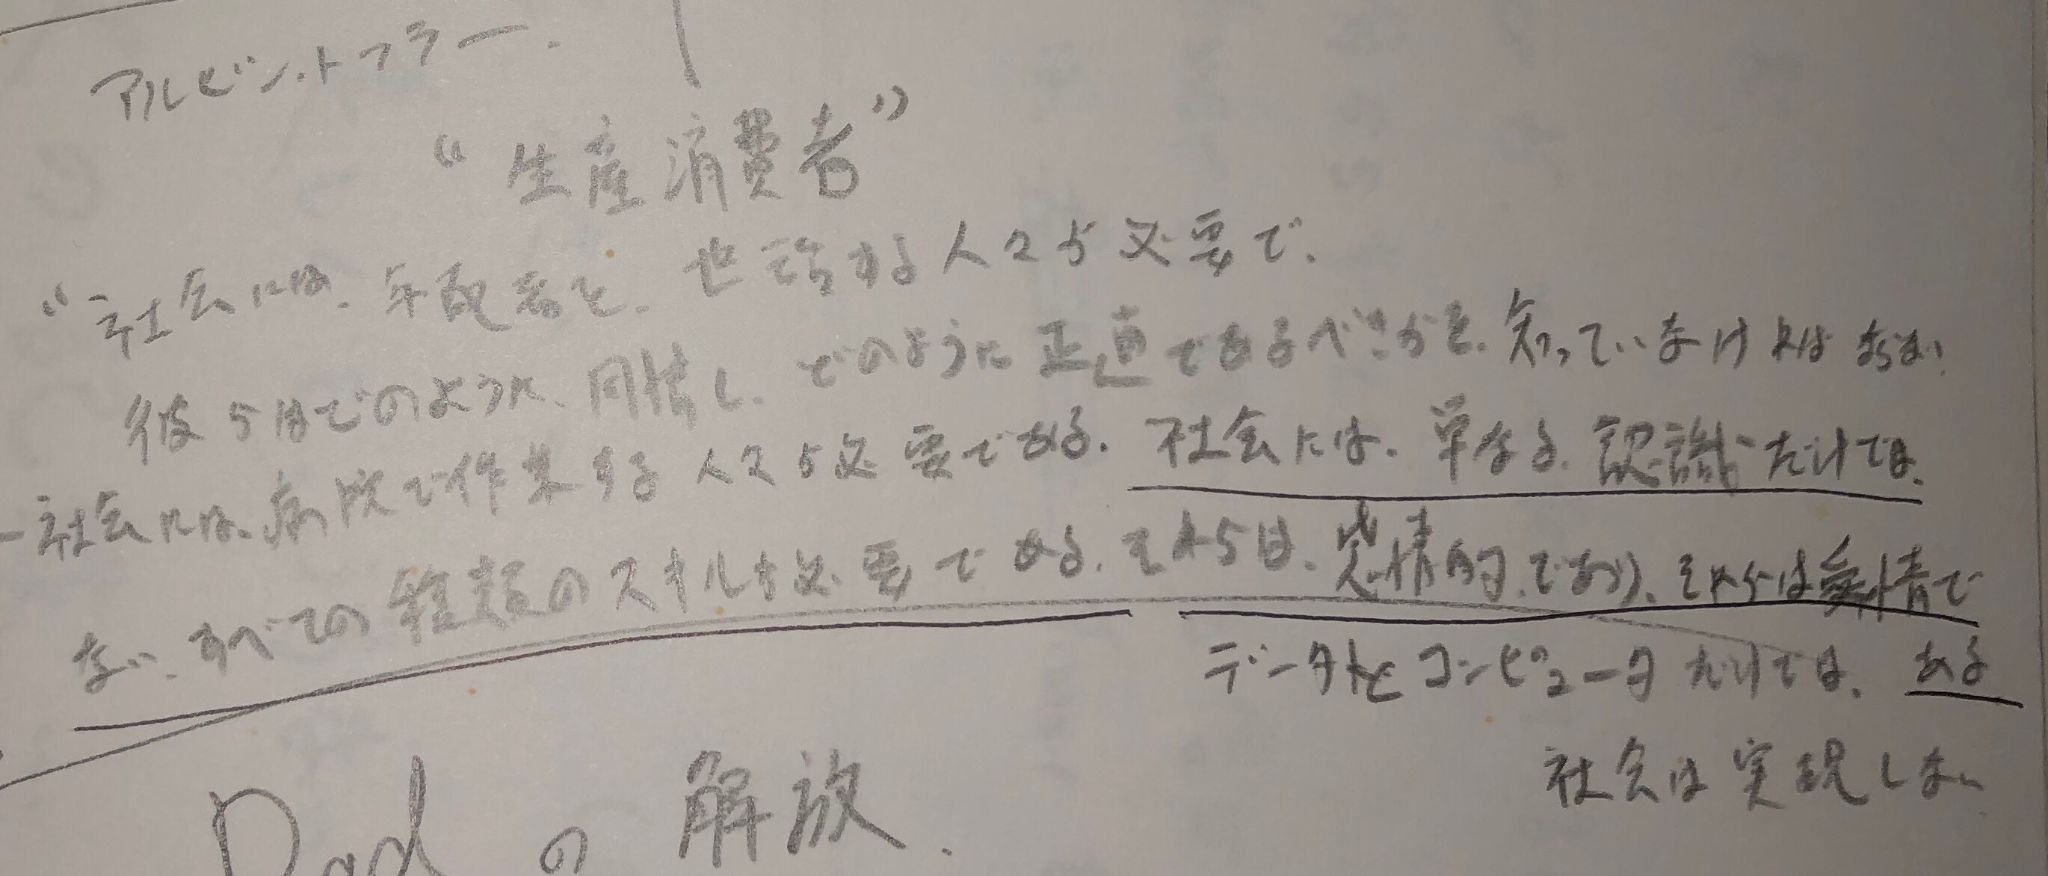 アルビン.トフラー.
“生産消費者”
“社会には、年政者を、世話する人々が必要で.
彼らはどのように、同情し、どのように正直であるべきかを、知っていなければならない
ー社会には、病院で作業する人々が必要である. 社会には、単なる、認識だけでは、
ない、すべての種類のスキルが必要である. それらは、感情的、であり、それらは愛情で
ある
データとコンピュータだけでは、
社会は実現しない
Dadの解放.